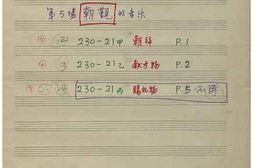 第5場 朝觀 的音乐
② 230-21甲 朝拜 P.1
③ 230-21乙 献方物 P.2
230-21丙 賜礼物 P.5 不用